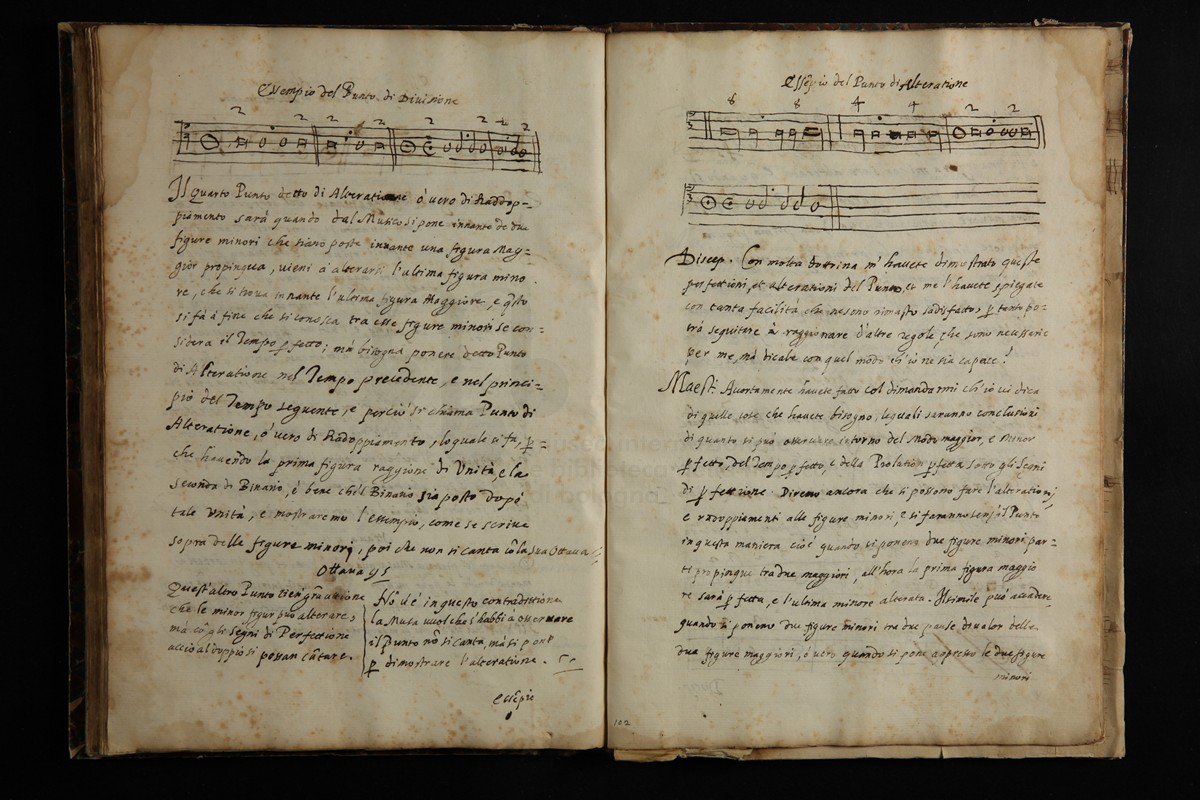 Essempio del Punto di Divisione
2 2 2 2 2 2 2
Il quarto Punto detto di Alteratione ò vero di Raddop=
piamento sarà quando dal Musico si pone innante de due
figure minori che siano poste innante una figura Mag=
gior propinqua, vieni à alterarsi l'ultima figura mino
re, che si trova innante l'ultima figura Maggiore, e q̃sto
si fà à fine che si conosca tra esse figure minori se con=
sidera il Tempo ꝑfetto; mà bisogna ponere detto Punto
di Alteratione nel Tempo precedente, e nel princi=
pio del Tempo seguente, e perciò si chiama Punto di
Alteratione, ò vero di Radoppiamento, lo quale si fa, ꝑ=
che havendo la prima figura raggione di Unità, e la
seconda di Binario, è bene che'l Binario sia posto dopò
tale Unità, e mostraremo l'essempio, come se scrive
sopra delle figure minori, poi che non si canta cõ la sua Ottava
Ottava 95
Quest'altro Punto tien gra
che le minor figur può alterare,
mà cõ gli Segni di Perfettione
acciò al doppio si possan cãtare.
Nõ v'è in questo contradittione
la Musa vuol che s'habbi à osservare
il punto nõ si canta, mà si pone
ꝑ dimostrare l'alteratione.
Essẽpio
Essẽpio del Punto di Alteratione
8 8 4 4 2 2
Discep. Con molta dottrina m'havete dimostrato queste
perfettioni, et alterationi del Punto, et me l'havete spiegate
con tanta facilità che ne sono rimasto sadisfatto, ꝑ tanto po=
trà seguitare à raggionare d'altre regole, che sono necessarie
per me, mà dicale con quel modo ch'io ne sia capace!
Maest: Accortamente havete fatto col dimandarmi ch'io vi dica
di quelle cose che havete bisogno, le quali saranno conclusioni
di quanto si può osservare intorno del Modo maggior, e Minor
ꝑfetto, del Tempo ꝑfetto, e della Prolation ꝑfetta sotto gli Segni
di ꝑfettione. Diremo ancora che si possono fare l'alterationi,
e raddoppiamenti alle figure minori, e si faranno senza il Punto
in questa maniera cioè quando si poneno due figure minori par=
ti propinque tra due maggiori, all'hora la prima figura maggio
re sarà ꝑfetta, e l'ultima minore alterata. Il simile può accadere,
quando si poneno due figure minori tra due pause de valor delle
due figure maggiori, ò vero quando si pone appresso le due figure
minori
122